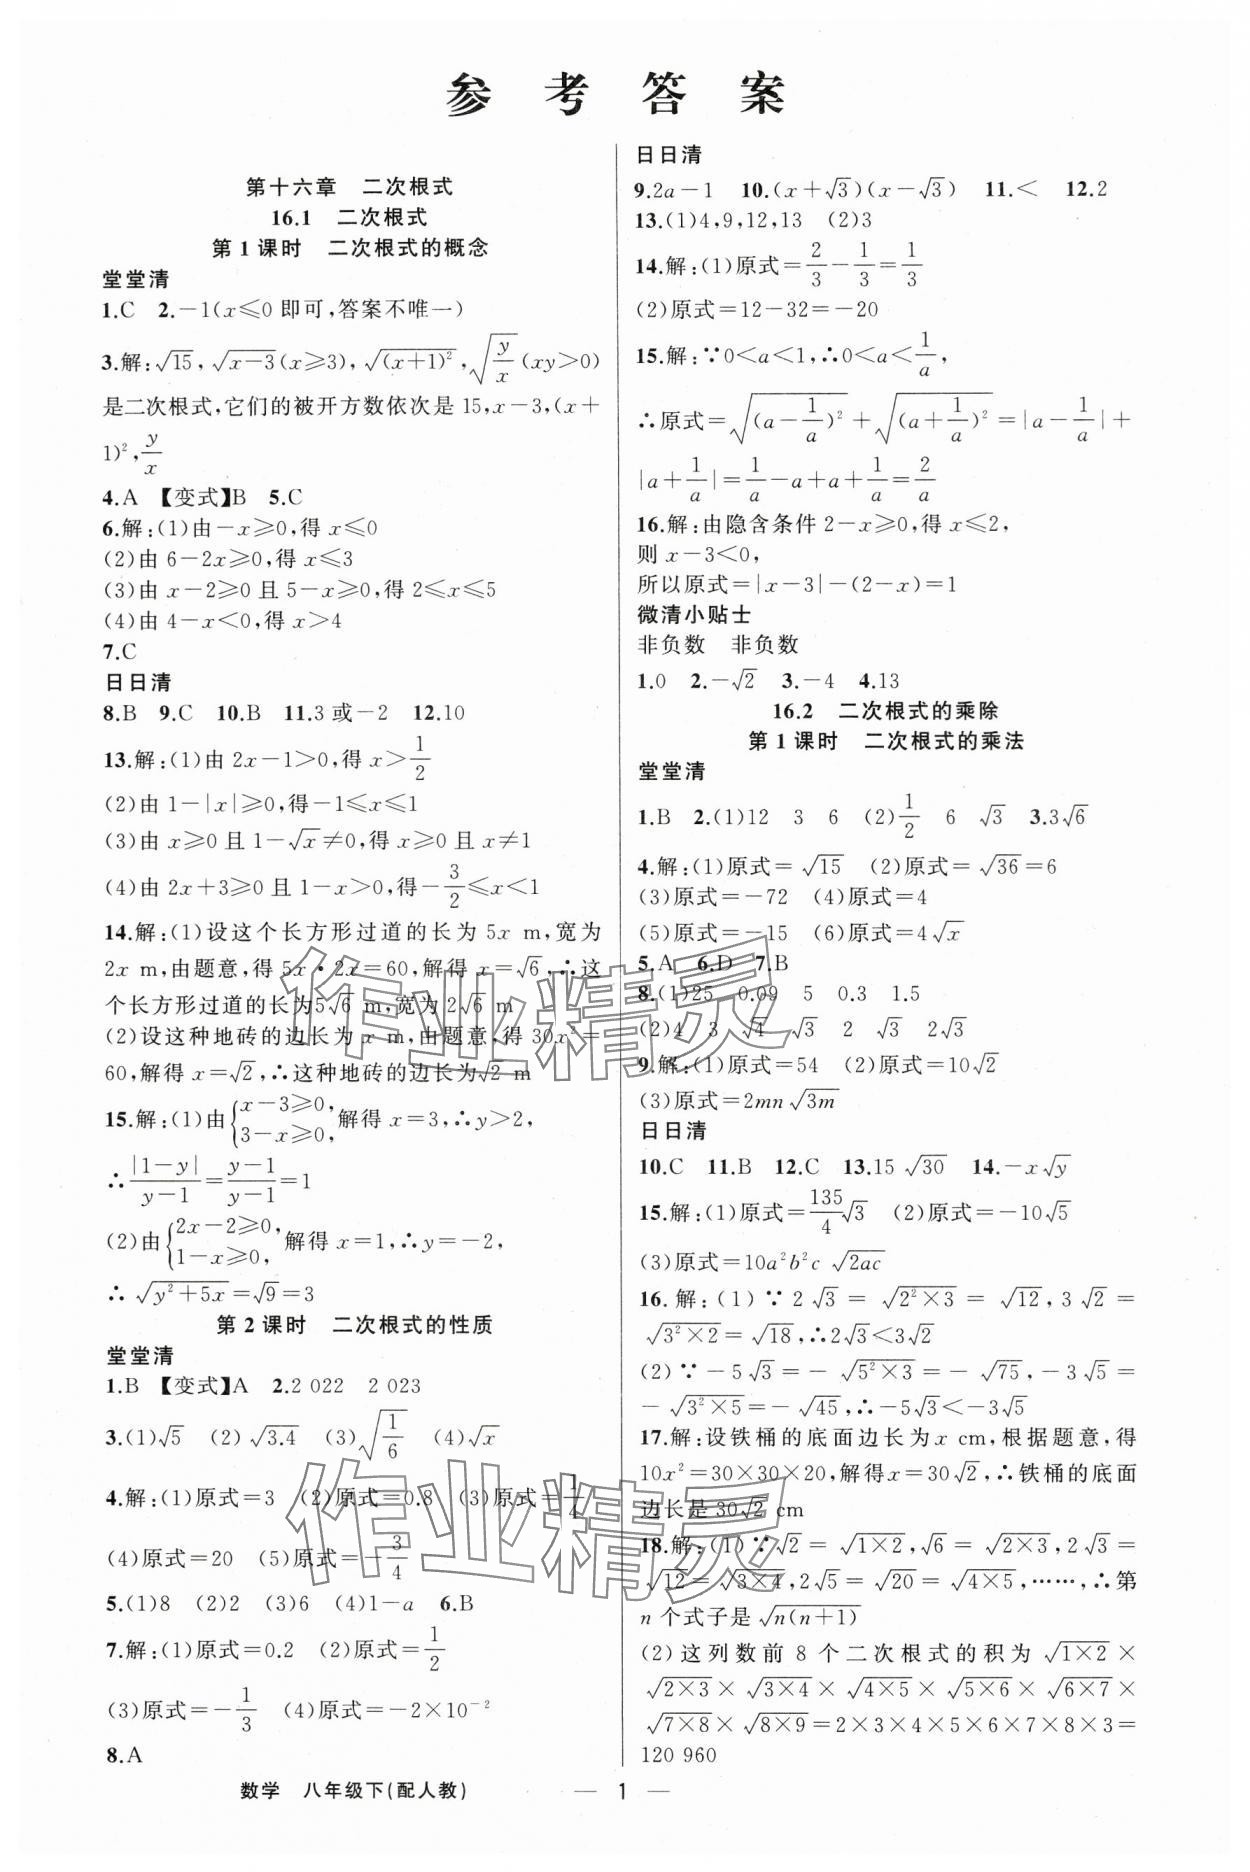 参考答案
第十六章 二次根式
16.1 二次根式
第1课时 二次根式的概念
堂堂清
1.C 2.-1(x≤0即可,答案不唯一)
3.解:√15,√(x-3)(x≥3),√((x+1)²),√(y/x)(xy>0)
是二次根式,它们的被开方数依次是15,x-3,(x+
1)²,y/x
4.A 【变式】B 5.C
6.解:(1)由-x≥0,得x≤0
(2)由6-2x≥0,得x≤3
(3)由x-2≥0且5-x≥0,得2≤x≤5
(4)由4-x<0,得x>4
7.C
日日清
8.B 9.C 10.B 11.3或-2 12.10
13.解:(1)由2x-1>0,得x>1/2
(2)由1-|x|≥0,得-1≤x≤1
(3)由x≥0且1-√x≠0,得x≥0且x≠1
(4)由2x+3≥0且1-x>0,得-3/2≤x<1
14.解:(1)设这个长方形过道的长为5x m,宽为
2x m,由题意,得5x·2x=60,解得x=√6,∴这
个长方形过道的长为5√6 m,宽为2√6 m
(2)设这种地砖的边长为x m,由题意,得30x²=
60,解得x=√2,∴这种地砖的边长为√2 m
15.解:(1)由{x-3≥0,3-x≥0,解得x=3,∴y>2,
∴|1-y|/(y-1)=(y-1)/(y-1)=1
(2)由{2x-2≥0,1-x≥0,解得x=1,∴y=-2,
∴√(y²+5x)=√9=3
第2课时 二次根式的性质
堂堂清
1.B 【变式】A 2.2 022 2 023
3.(1)√5 (2)√3.4 (3)√(1/6) (4)√x
4.解:(1)原式=3 (2)原式=0.8 (3)原式=1/4
(4)原式=20 (5)原式=-3/4
5.(1)8 (2)2 (3)6 (4)1-a 6.B
7.解:(1)原式=0.2 (2)原式=1/2
(3)原式=-1/3 (4)原式=-2×10⁻²
8.A
日日清
9.2a-1 10.(x+√3)(x-√3) 11.< 12.2
13.(1)4,9,12,13 (2)3
14.解:(1)原式=2/3-1/3=1/3
(2)原式=12-32=-20
15.解:∵0<a<1,∴0<a<1/a,
∴原式=√((a-1/a)²)+√((a+1/a)²)=|a-1/a|+
|a+1/a|=1/a-a+a+1/a=2/a
16.解:由隐含条件2-x≥0,得x≤2,
则x-3<0,
所以原式=|x-3|-(2-x)=1
微清小贴士
非负数 非负数
1.0 2.-√2 3.-4 4.13
16.2 二次根式的乘除
第1课时 二次根式的乘法
堂堂清
1.B 2.(1)12 3 6 (2)1/2 6 √3 3.3√6
4.解:(1)原式=√15 (2)原式=√36=6
(3)原式=-72 (4)原式=4
(5)原式=15 (6)原式=4√x
5.A 6.D 7.B
8.(1)25 0.09 5 0.3 1.5
(2)4 3 √4 √3 2 √3 2√3
9.解:(1)原式=54 (2)原式=10√2
(3)原式=2mn√3m
日日清
10.C 11.B 12.C 13.15 √30 14.-x√y
15.解:(1)原式=135/4√3 (2)原式=-10√5
(3)原式=10a²b²c√2ac
16.解:(1)∵2√3=√(2²×3)=√12,3√2=
√(3²×2)=√18,∴2√3<3√2
(2)∵-5√3=-√(5²×3)=-√75,-3√5=
-√(3²×5)=-√45,∴-5√3<-3√5
17.解:设铁桶的底面边长为x cm,根据题意,得
10x²=30×30×20,解得x=30√2,∴铁桶的底面
边长是30√2 cm
18.解:(1)∵√2=√(1×2),√6=√(2×3),2√3=
√12=√(3×4),2√5=√20=√(4×5),……,∴第
n个式子是√(n(n+1))
(2)这列数前8个二次根式的积为√(1×2)×
√(2×3)×√(3×4)×√(4×5)×√(5×6)×√(6×7)×
√(7×8)×√(8×9)=2×3×4×5×6×7×8×3=
120 960
数学 八年级下(配人教) — 1 —
作业精灵
作业精灵